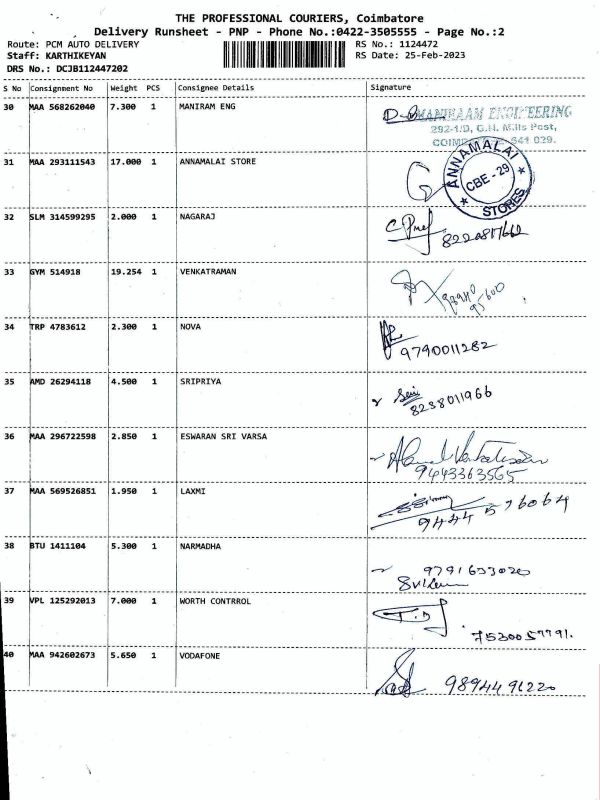 THE PROFESSIONAL COURIERS, Coimbatore
Delivery Runsheet - PNP - Phone No.:0422-3505555 - Page No.:2
Route: PCM AUTO DELIVERY RS No.: 1124472
Staff: KARTHIKEYAN RS Date: 25-Feb-2023
DRS No.: DCJB112447202
S No Consignment No Weight PCS Consignee Details Signature
30 MAA 568262040 7.300 1 MANIRAM ENG
MANIKAAM ENGINEERING
292-1/D, G.N. Mills Post,
641 029.
31 MAA 293111543 17.000 1 ANNAMALAI STORE
ANNAMALAI
CBE - 29
STORES
32 SLM 314599295 2.000 1 NAGARAJ
33 GYM 514918 19.254 1 VENKATRAMAN
95600
34 TRP 4783612 2.300 1 NOVA
9790011282
35 AMD 26294118 4.500 1 SRIPRIYA
8238011966
36 MAA 296722598 2.850 1 ESWARAN SRI VARSA
9443363565
37 MAA 569526851 1.950 1 LAXMI
9444 576064
38 BTU 1411104 5.300 1 NARMADHA
9791633020
39 VPL 125292013 7.000 1 WORTH CONTRROL
7530057791.
40 MAA 942602673 5.650 1 VODAFONE
9894491220